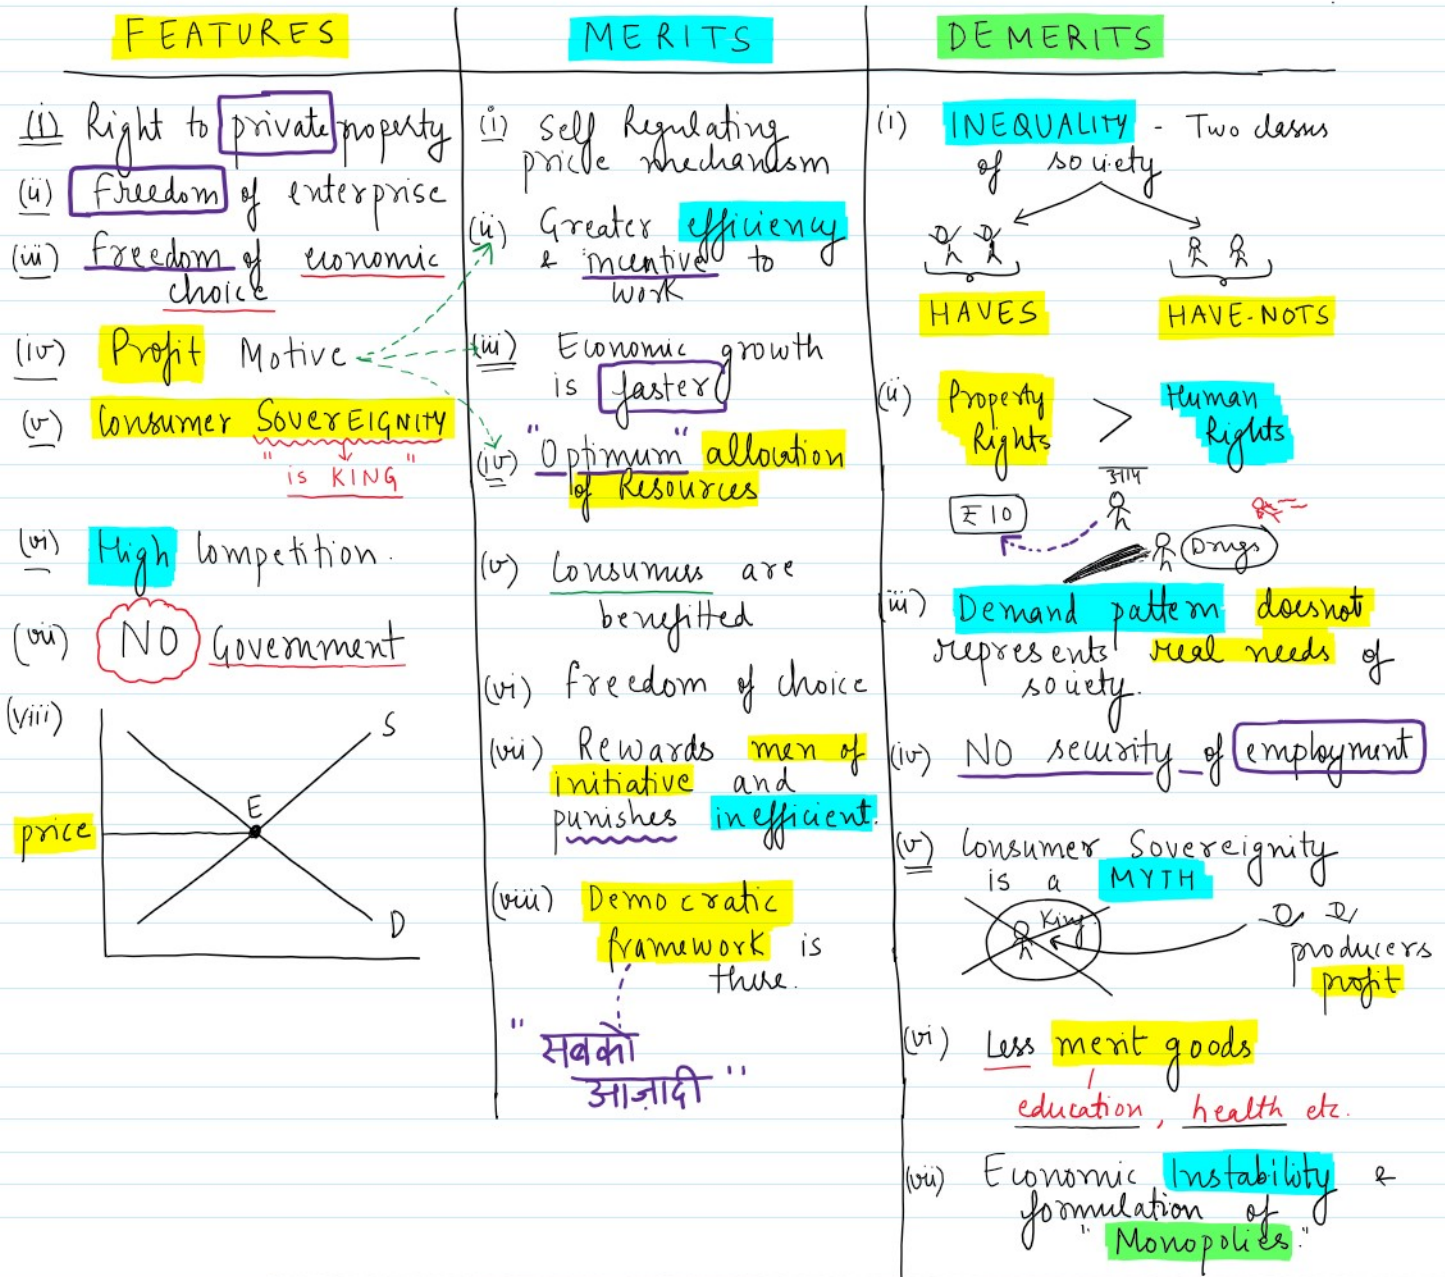 FEATURES
(i) Right to private property
(ii) Freedom of enterprise
(iii) Freedom of economic
choice
(iv) Profit Motive
(v) Consumer SOVEREIGNITY
" is KING "
(vi) High Competition.
(vii) NO Government
(viii)
S
E
price
D
MERITS
(i) Self Regulating
price mechanism
(ii) Greater efficiency
& incentive to
work
(iii) Economic growth
is faster
(iv) "Optimum" allocation
of Resources
(v) Consumers are
benefitted
(vi) Freedom of choice
(vii) Rewards men of
initiative and
punishes inefficient.
(viii) Democratic
framework is
there.
" सबको
आज़ादी "
DEMERITS
(i) INEQUALITY - Two classes
of society
HAVES
HAVE-NOTS
(ii) Property > Human
Rights Rights
₹10
Drugs
(iii) Demand pattern doesnot
represents real needs of
society.
(iv) NO security of employment
(v) Consumer Sovereignity
is a MYTH
King
producers
profit
(vi) Less merit goods
education, health etc.
(vii) Economic Instability &
formulation of
"Monopolies."